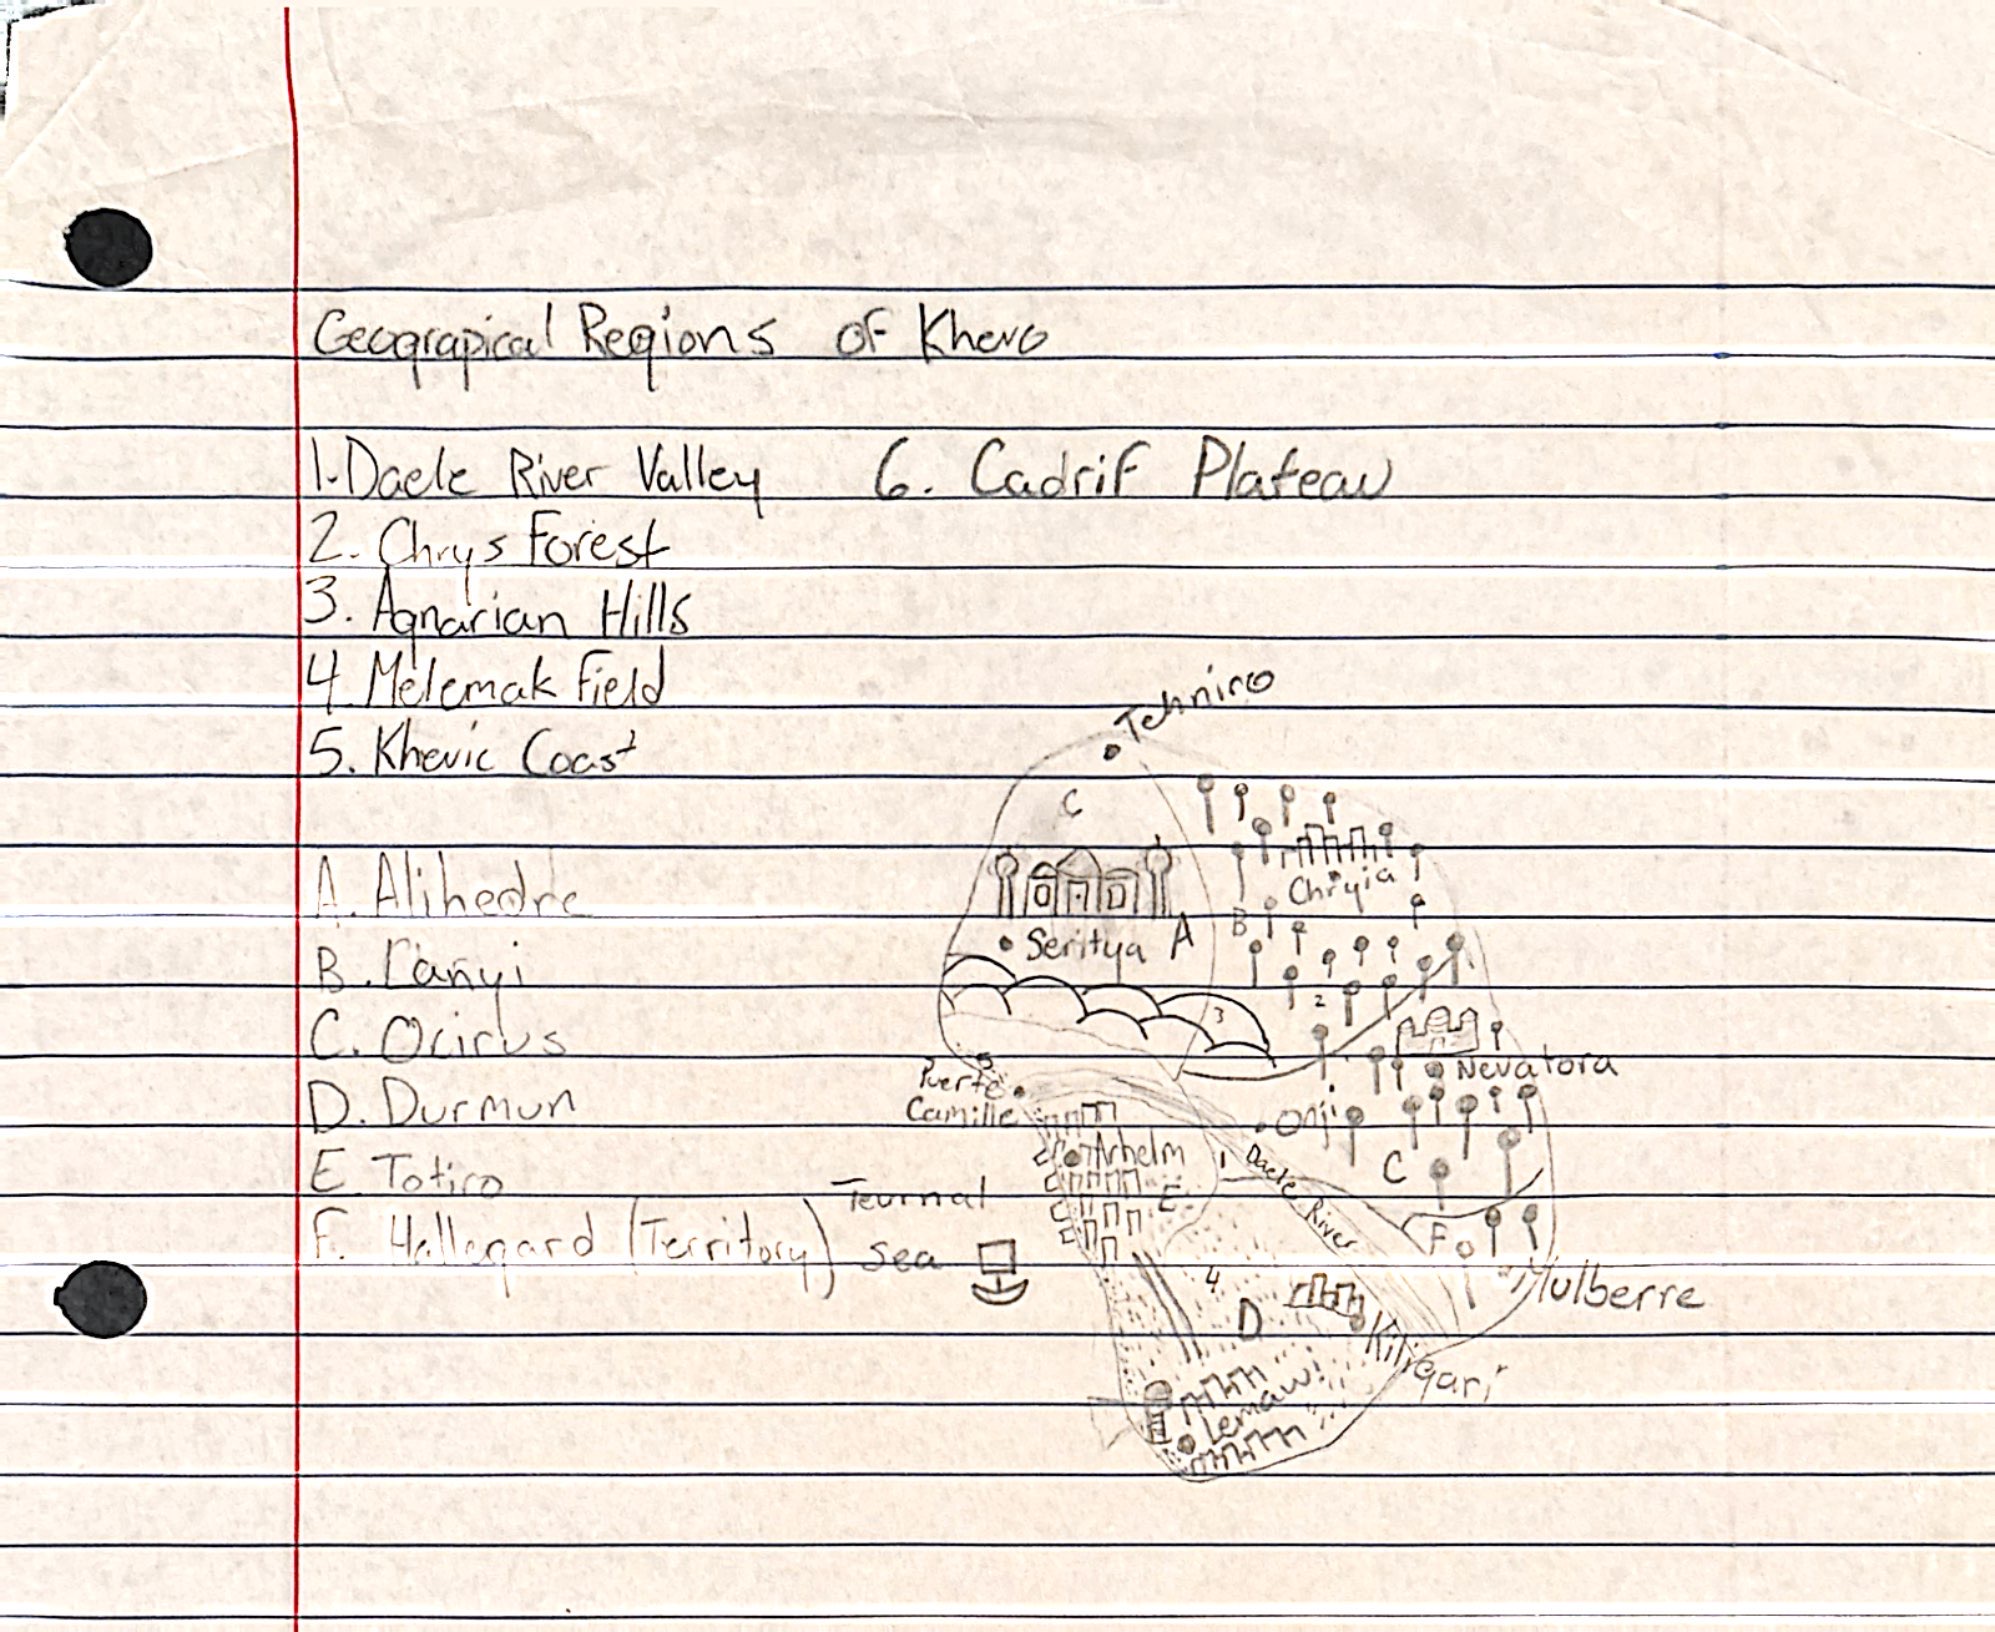 Geograpical Regions of Khevo
1. Daele River Valley 6. Cadrif Plateau
2. Chrys Forest
3. Agnarian Hills
4. Melemak Field
5. Khevic Coast
A. Alihedre
B. Lanyi
C. Ocirus
D. Durmun
E. Totiro
F. Hallegard (Territory)
Tehniro
C
Chryia
Seritya A
B
2
3
Nevatora
5
Puerto
Camille
Onji
Arhelm
1
Daele River
C
E
Teurnal
Sea
F
4
Mulberre
D
Kiligari
Lemawi